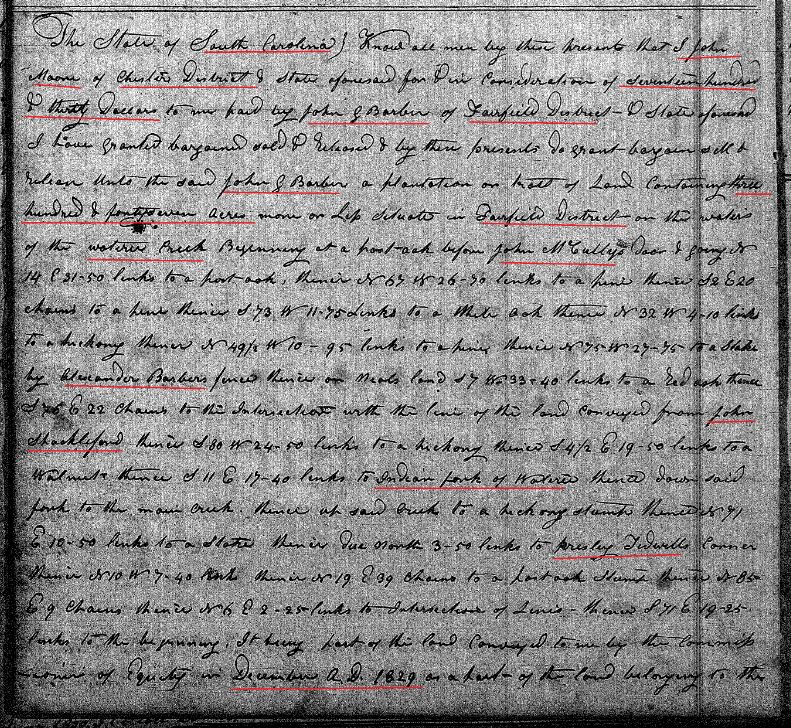 The State of South Carolina } Know all men by these presents that I John
Moore of Chester District & State aforesaid for & in Consideration of Seventeen hundred
& thirty Dollars to me paid by John G Barber of Fairfield District & State aforesaid
I have granted bargained sold & Released & by these presents do grant bargain sell &
release Unto the said John G Barber a plantation or tract of Land Containing three
hundred & forty seven acres more or Less Situate in Fairfield District on the waters
of the wateree Creek Beginning at a post oak before John McCullys door & going N
14 E 31-50 links to a post oak, thence N 67 W 26-70 links to a pine thence S2 E20
chains to a pine thence S 73 W 11-75 Links to a White oak thence N 32 W 4-10 links
to a hickory thence N 49½ W 10-95 links to a pine thence N 75 W 27-75 to a Stake
by Alexander Barbers fence thence on Neals land S 7 W 33-40 links to a Red oak thence
E 22 Chains to the Intersection with the line of the land conveyed from John
Shackleford thence S 80 W 24-50 links to a hickory thence S 4½ E 19-50 links to a
Walnut thence S 11 E 17-40 links to Indian fork of Wateree thence down said
fork to the main creek. thence up said creek to a hickory stump thence N 71
E 10-50 links to a Stake thence due North 3-50 links to presley Tidwells Corner
thence N 10 W 7-40 thence N 19 E 39 Chains to a post oak Stump thence N 85
E 9 Chains thence N 6 E 2-25 links to Intersection of Lines - thence S 71 E 19-25
links to the beginning. It being part of the land Conveyed to me by the commiss
ioner of Equity in December A.D. 1829 as a part of the land belonging to the